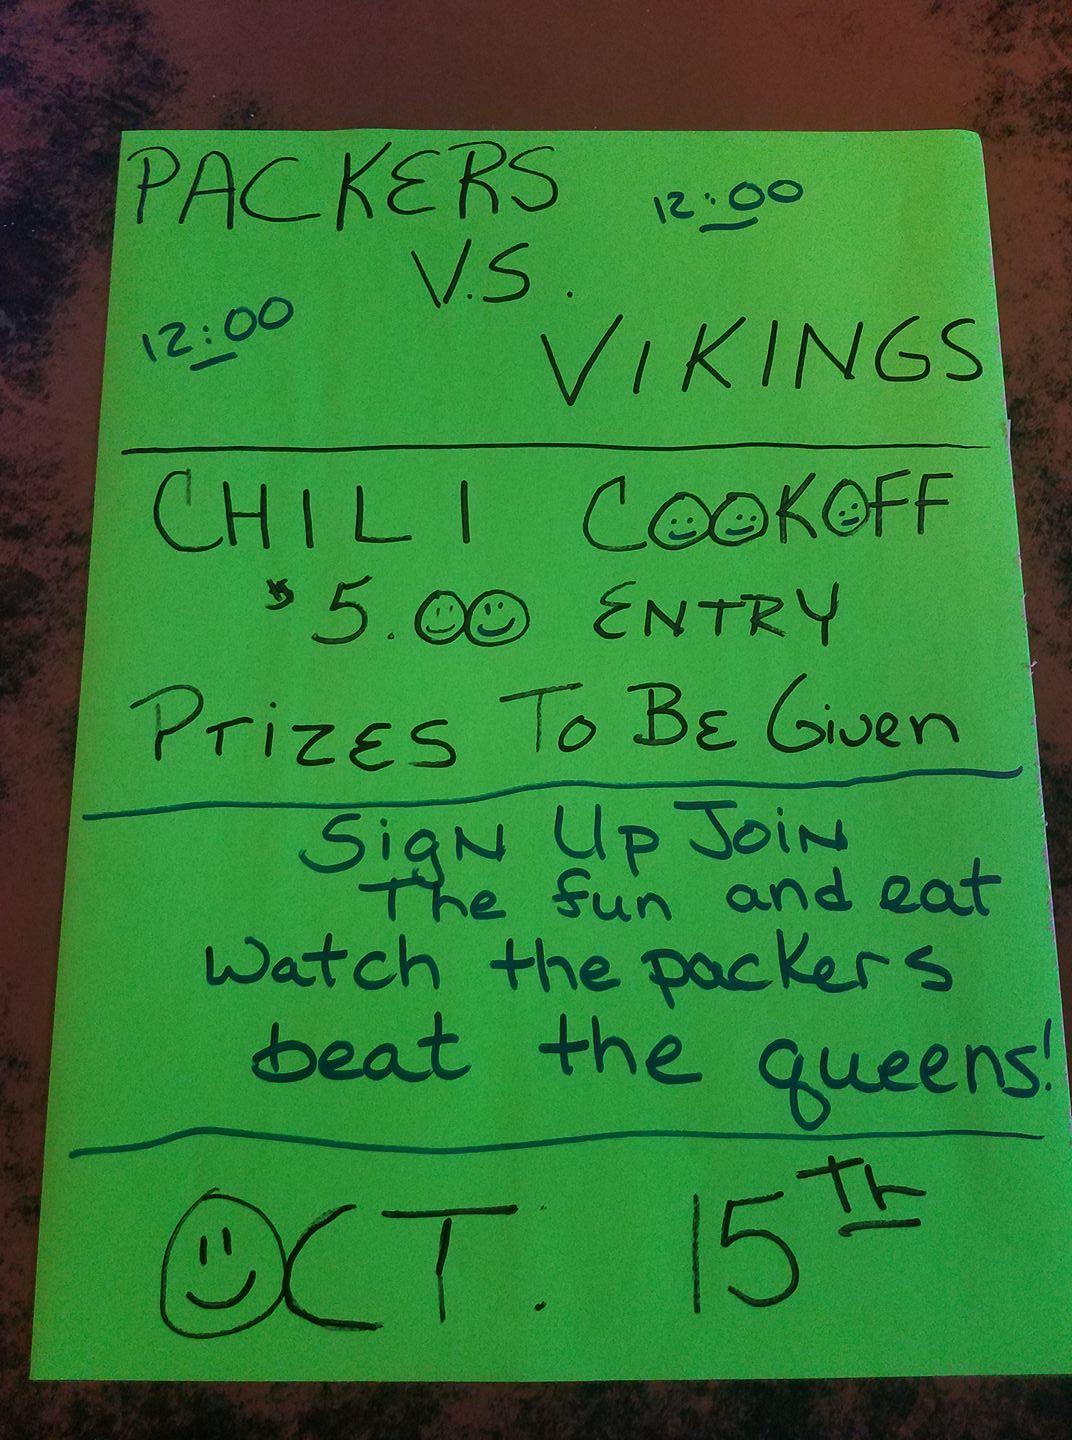 PACKERS
12:00
V.S.
12:00
VIKINGS
CHILI COOKOFF
$5.00 ENTRY
PRIZES TO BE Given
SigN Up JoiN
The fun and eat
Watch the packers
beat the queens!
OCT. 15TH